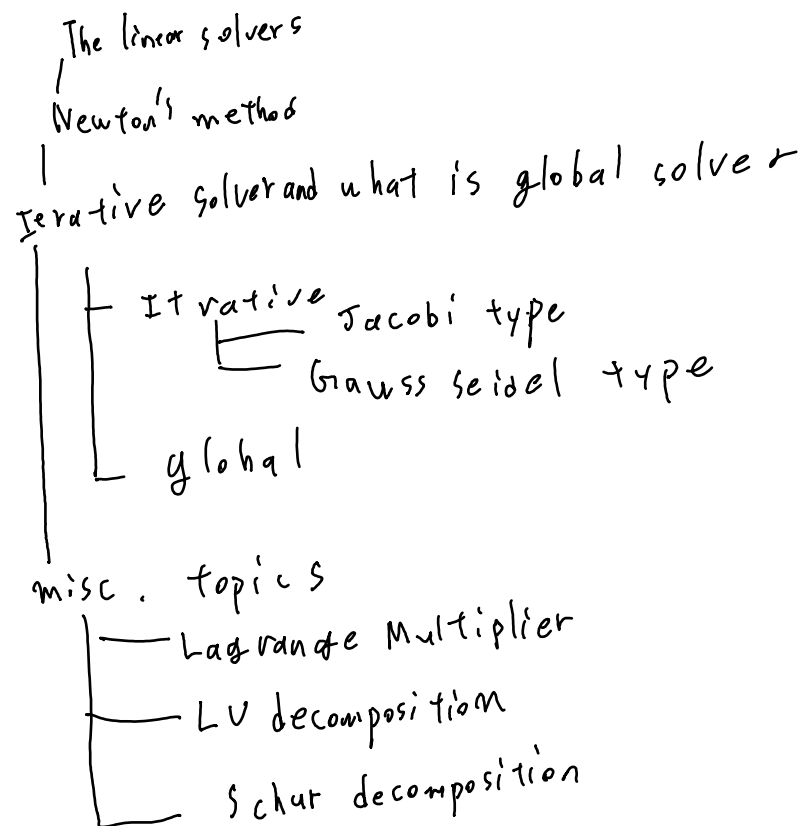 The linear solvers
Newton's method
Ierative solver and what is global solver
Itrative
Jacobi type
Gauss seidel type
global
misc. topics
Lagrange Multiplier
LU decomposition
Schur decomposition